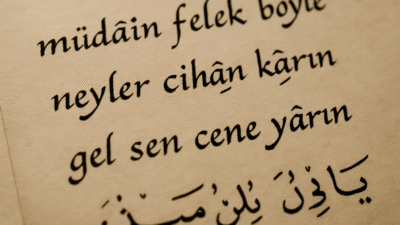 müdâin felek böyle
neyler cihân kârın
gel sen cene yârın